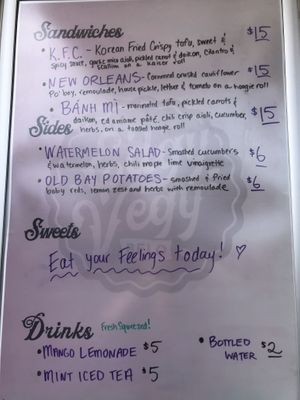 Sandwiches
• K.F.C. - Korean Fried Crispy tofu, sweet & $15
spicy sauce, garlic miso aioli, pickled carrot & daikon, cilantro &
scallion on a kaiser roll
• NEW ORLEANS - Cornmeal crusted cauliflower $15
Po'boy, remoulade, house pickle, lettuce & tomato on a hoagie roll
• BÁNH MÌ - marinated tofu, pickled carrots & $15
daikon, edamame pâté, chili crisp aioli, cucumber,
herbs, on a toasted hoagie roll
Sides
• WATERMELON SALAD - smashed cucumbers $6
& watermelon, herbs, chili maple lime vinaigrette
• OLD BAY POTATOES - smashed & fried $6
baby reds, lemon zest and herbs with remoulade
Vegy
Sweets
Eat your Feelings today! ♡
Drinks Fresh Squeezed!
• MANGO LEMONADE $5
• MINT ICED TEA $5
• BOTTLED
WATER $2